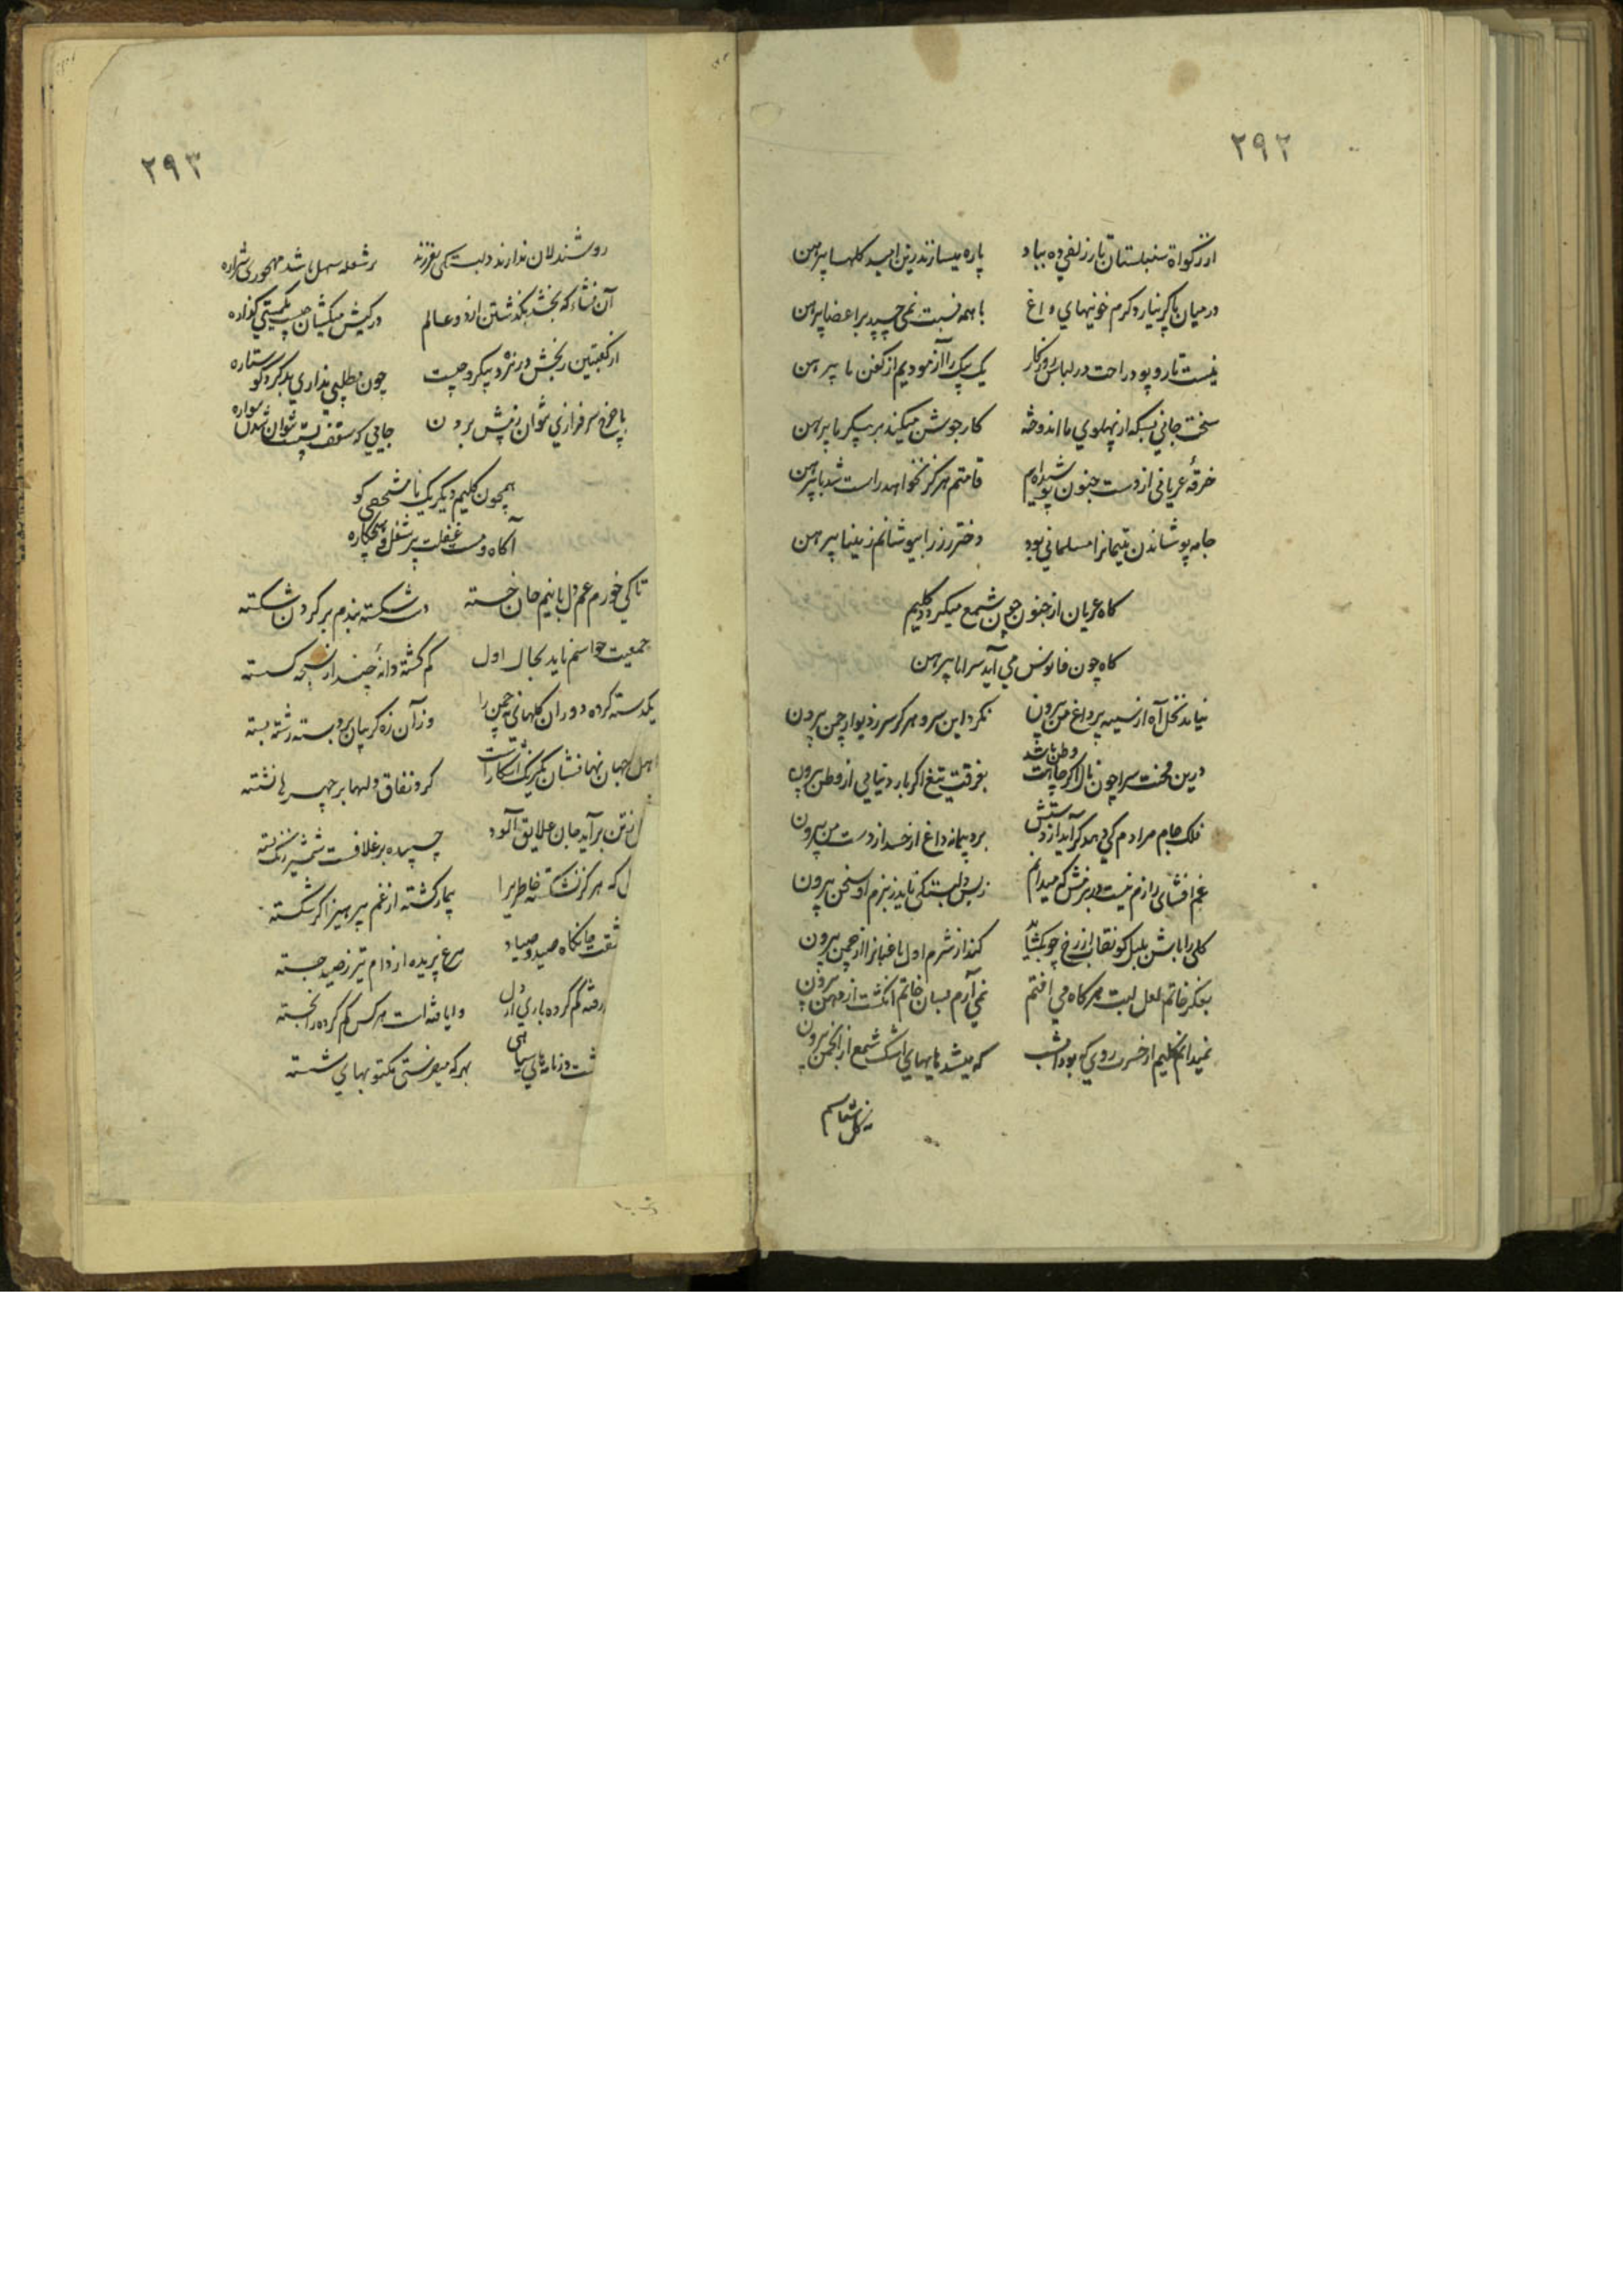 ۲۹۲
از زکواة سنبلستان تار زلفی ده بباد پاره میسازند زین امید کلها پیرهن
در میان پا کر نیارد کرم خونیهای داغ با همه نسبت نمی چسپد بر اعضا پیرهن
نیست تار و پود راحت در لباس روزکار یک بیک را آزمودیم از کفن تا پیرهن
سخت جانی بسکه از پهلوی ما اندوخته کار جوشن میکند بر پیکر ما پیرهن
خرقهٔ عریانی از دست جنون پوشیده‌ام قامتم هرکز نخواهد راست شد با پیرهن
جامه پوشاندن یتیمانرا مسلمانی بود دختر رز را بپوشانم ز مینا پیرهن
کاه عریان از جنون چون شمع میکردد کلیم
کاه چون فانوس می آید سراپا پیرهن
نیاید نخل آه از سینهٔ پر داغ من بیرون نکرد این سرو هرکز سر ز دیوار چمن بیرون
درین محنت سرا چون لاله اکر جایت وطن باشد بفرقت تیغ اکر بارد نیایی از وطن بیرون
فلک جام مرادم کی دهد کر آید از دستش برد پیمانه داغ از حسد از دست من بیرون
غم افشای رازم نیست در بزمش که میدانم ز بس دلبستکی ناید ز بزم او سخن بیرون
کلی را باش بلبل کو نقاب از رخ چو بکشاید کند از شرم اول باغبانرا از چمن بیرون
بفکر خاتم لعل لبت هرکاه می افتم نمی آرم بسان خاتم انکشت از دهن بیرون
نمیدانم کلیم از حسرت روی که بود امشب که میشد پابپای اشک شمع از انجمن بیرون
۲۹۳
روشندلان ندارند دلبستکی بفرزند بر شعله سهل باشد مهجوری شراره
آن نشاء که بخشد بکذشتن از دو عالم در کیش میکشان چیست یکمستی کذاره
از کعبتین رنجش در نرد دیکرو چیست چون مطلبی نداری بد کرد کو ستاره
پا چرخ سرفرازی نتوان ز پیش بردن جایی که سقف پستست نتوان شدن سواره
همچون کلیم دیکر یک ناشخصی کو
آکاه و مست غفلت پر شغل و هیچکاره
تا کی خورم غم دل با نیم جان خسته دست شکسته بندم بر کردن شکسته
جمعیت حواسم ناید بحال اول کم کشته دانهٔ چند از سبحه کسسته
یکدسته کرده دوران کلهای نه چمن را وز آن زه کریبان برو بسته رشته بسته
اهل جهان نهانشان یکرنک آشکارست کرد نفاق دلها بر چهرها نشسته
تن برآید جان علایق آلود چسپیده بر غلافست شمشیر زنک بسته
که هرکز نشکسته خاطریرا بیمار کشته از غم پرهیز اکر شکسته
جانکاه صید و صیاد مرغ پریده از دام تیر ز صید جسته
کم کرده باری از دل وایافته است هرکس کم کرده را نجسته
در نامه سیاهی بهر که میفرستی مکتوبهای شسته